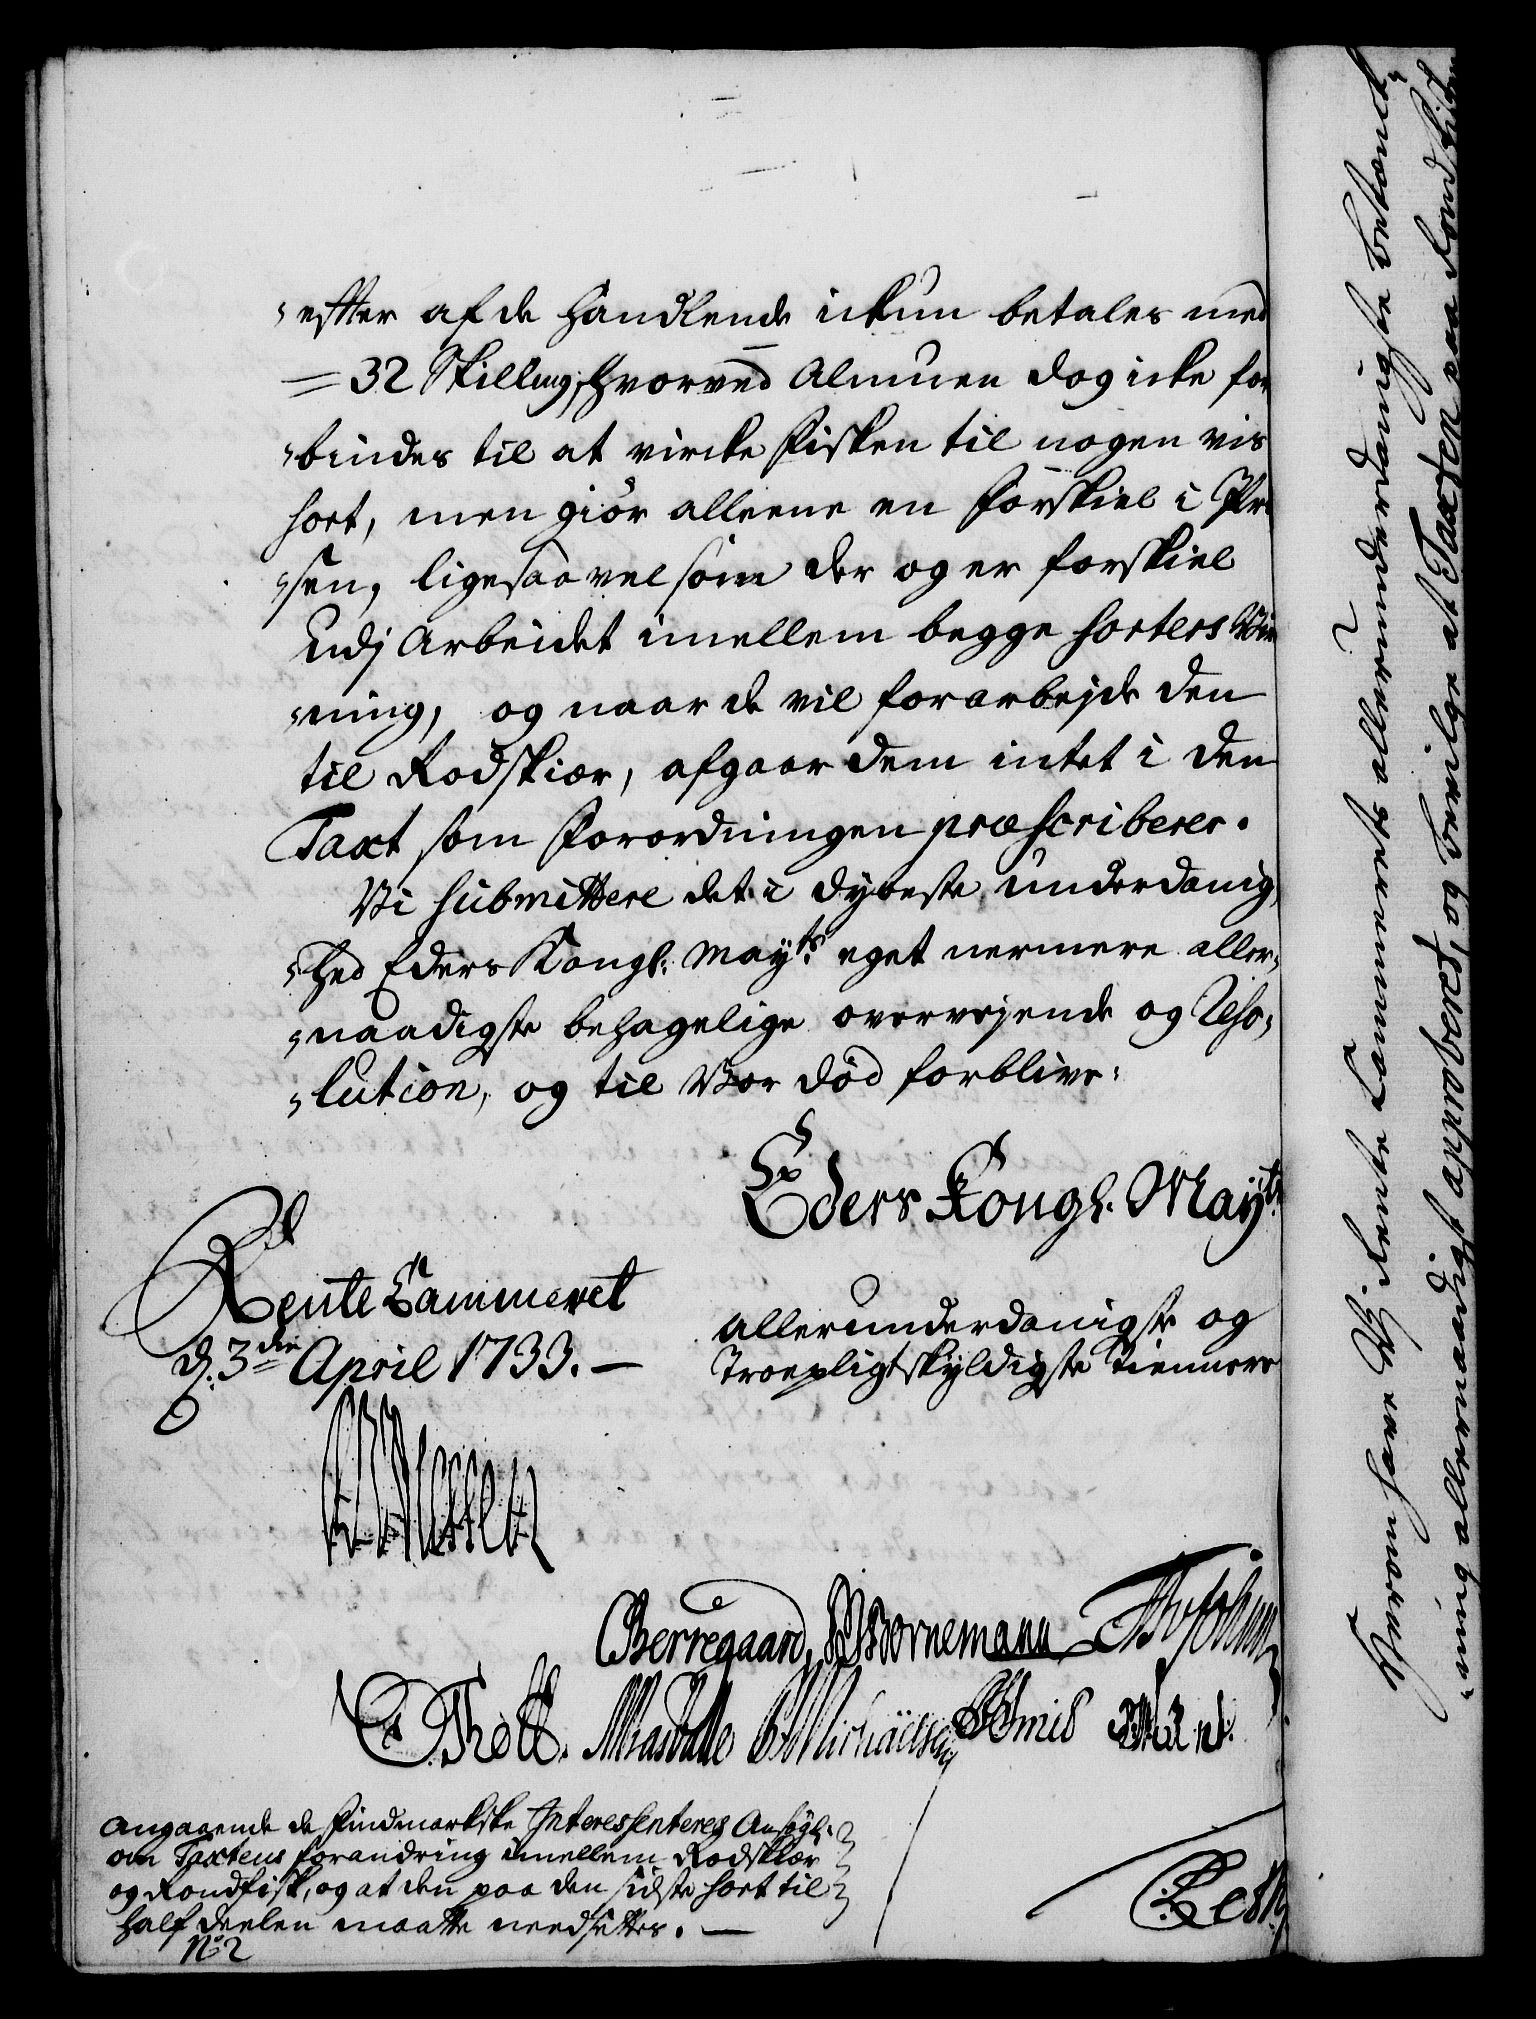 „effter af de Handlende ickun betales med
= 32 Skilling, hvorved Almuen dog icke for
„bindes til at vircke Fisken til nogen vis
Sort, men giør alleene en Forskiel i Pri
„sen, ligesaavelsom der og er forskiel
udj Arbeidet imellem begge Sorters Vir
„ning, og naar de vil forarbejde den
til Rodskiær, afgaar dem intet i den
Taxt som Forordningen præscriberer.
Vi submittere det i dybeste underdanig
„hed Eders Kongl: Mayts: eget nermere aller„
„naadigste behagelige overvejende og Reso„
„lution, og til Vor død forblive:
Eders Kongl. Mayts:
Rente Cammeret
d. 3die April 1733. —
allerunderdanigste og
Troepligtskyldigste Tiennere
Berregaard, Bornemann
C. Thott. Michäelsen Schmid
Angaaende de Findmarkske Interessenteres Ansøgl:
om Taxtens forandring imellem Rodskiær
og Rondfisk, og at den paa den sidste Sort til
Half deelen maatte needsettes. —
No 2
Resol
Herom have Vi Rente Cammerets allerunderdanigste betænck„
„ning allernaadigst approberet, og bevilge at Taxten paa Rondfisken